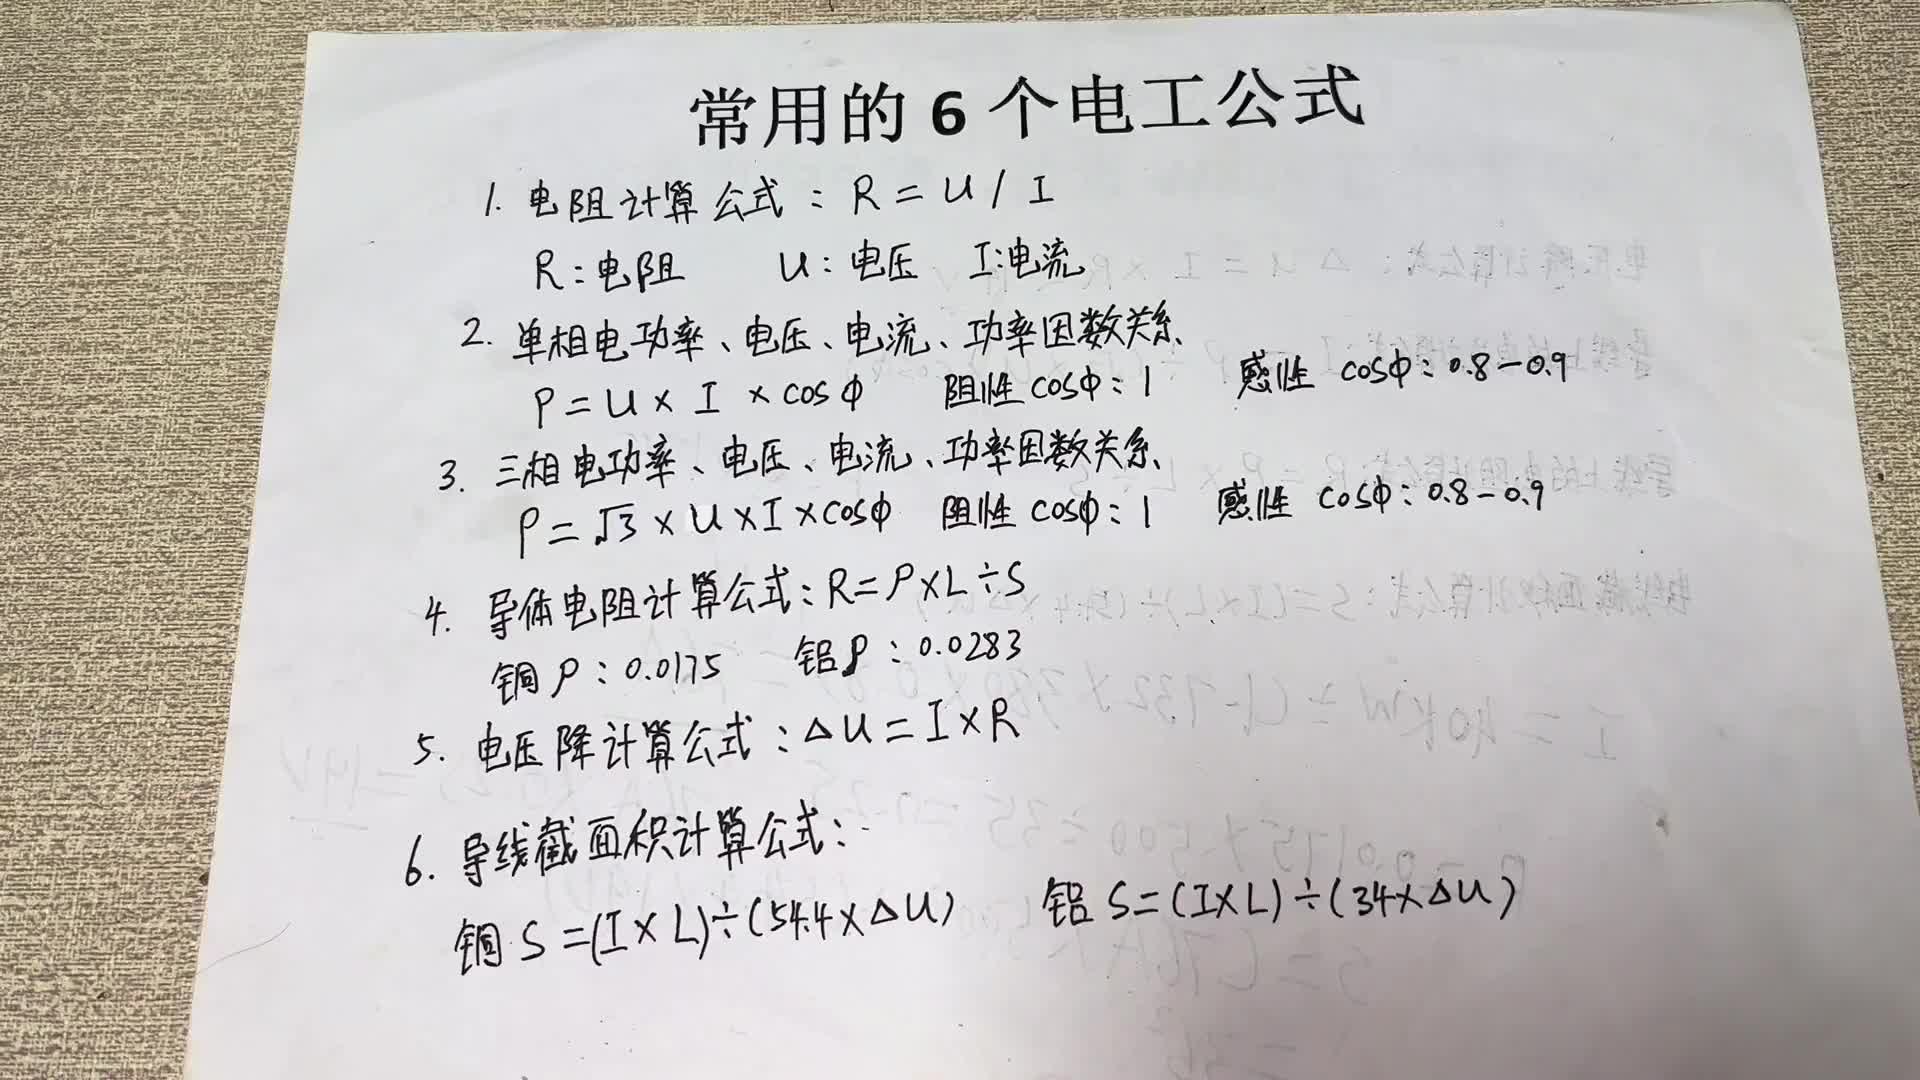 常用的 6 个电工公式
1. 电阻计算公式：R = U / I
R：电阻 U：电压 I：电流
2. 单相电功率、电压、电流、功率因数关系
P = U × I × cosφ 阻性 cosφ：1 感性 cosφ：0.8-0.9
3. 三相电功率、电压、电流、功率因数关系
P = √3 × U × I × cosφ 阻性 cosφ：1 感性 cosφ：0.8-0.9
4. 导体电阻计算公式：R=ρ×L÷S
铜ρ：0.0175 铝ρ：0.0283
5. 电压降计算公式：△U = I×R
6. 导线截面积计算公式：
铜 S =(I×L)÷(54.4×△U) 铝 S=(I×L)÷(34×△U)